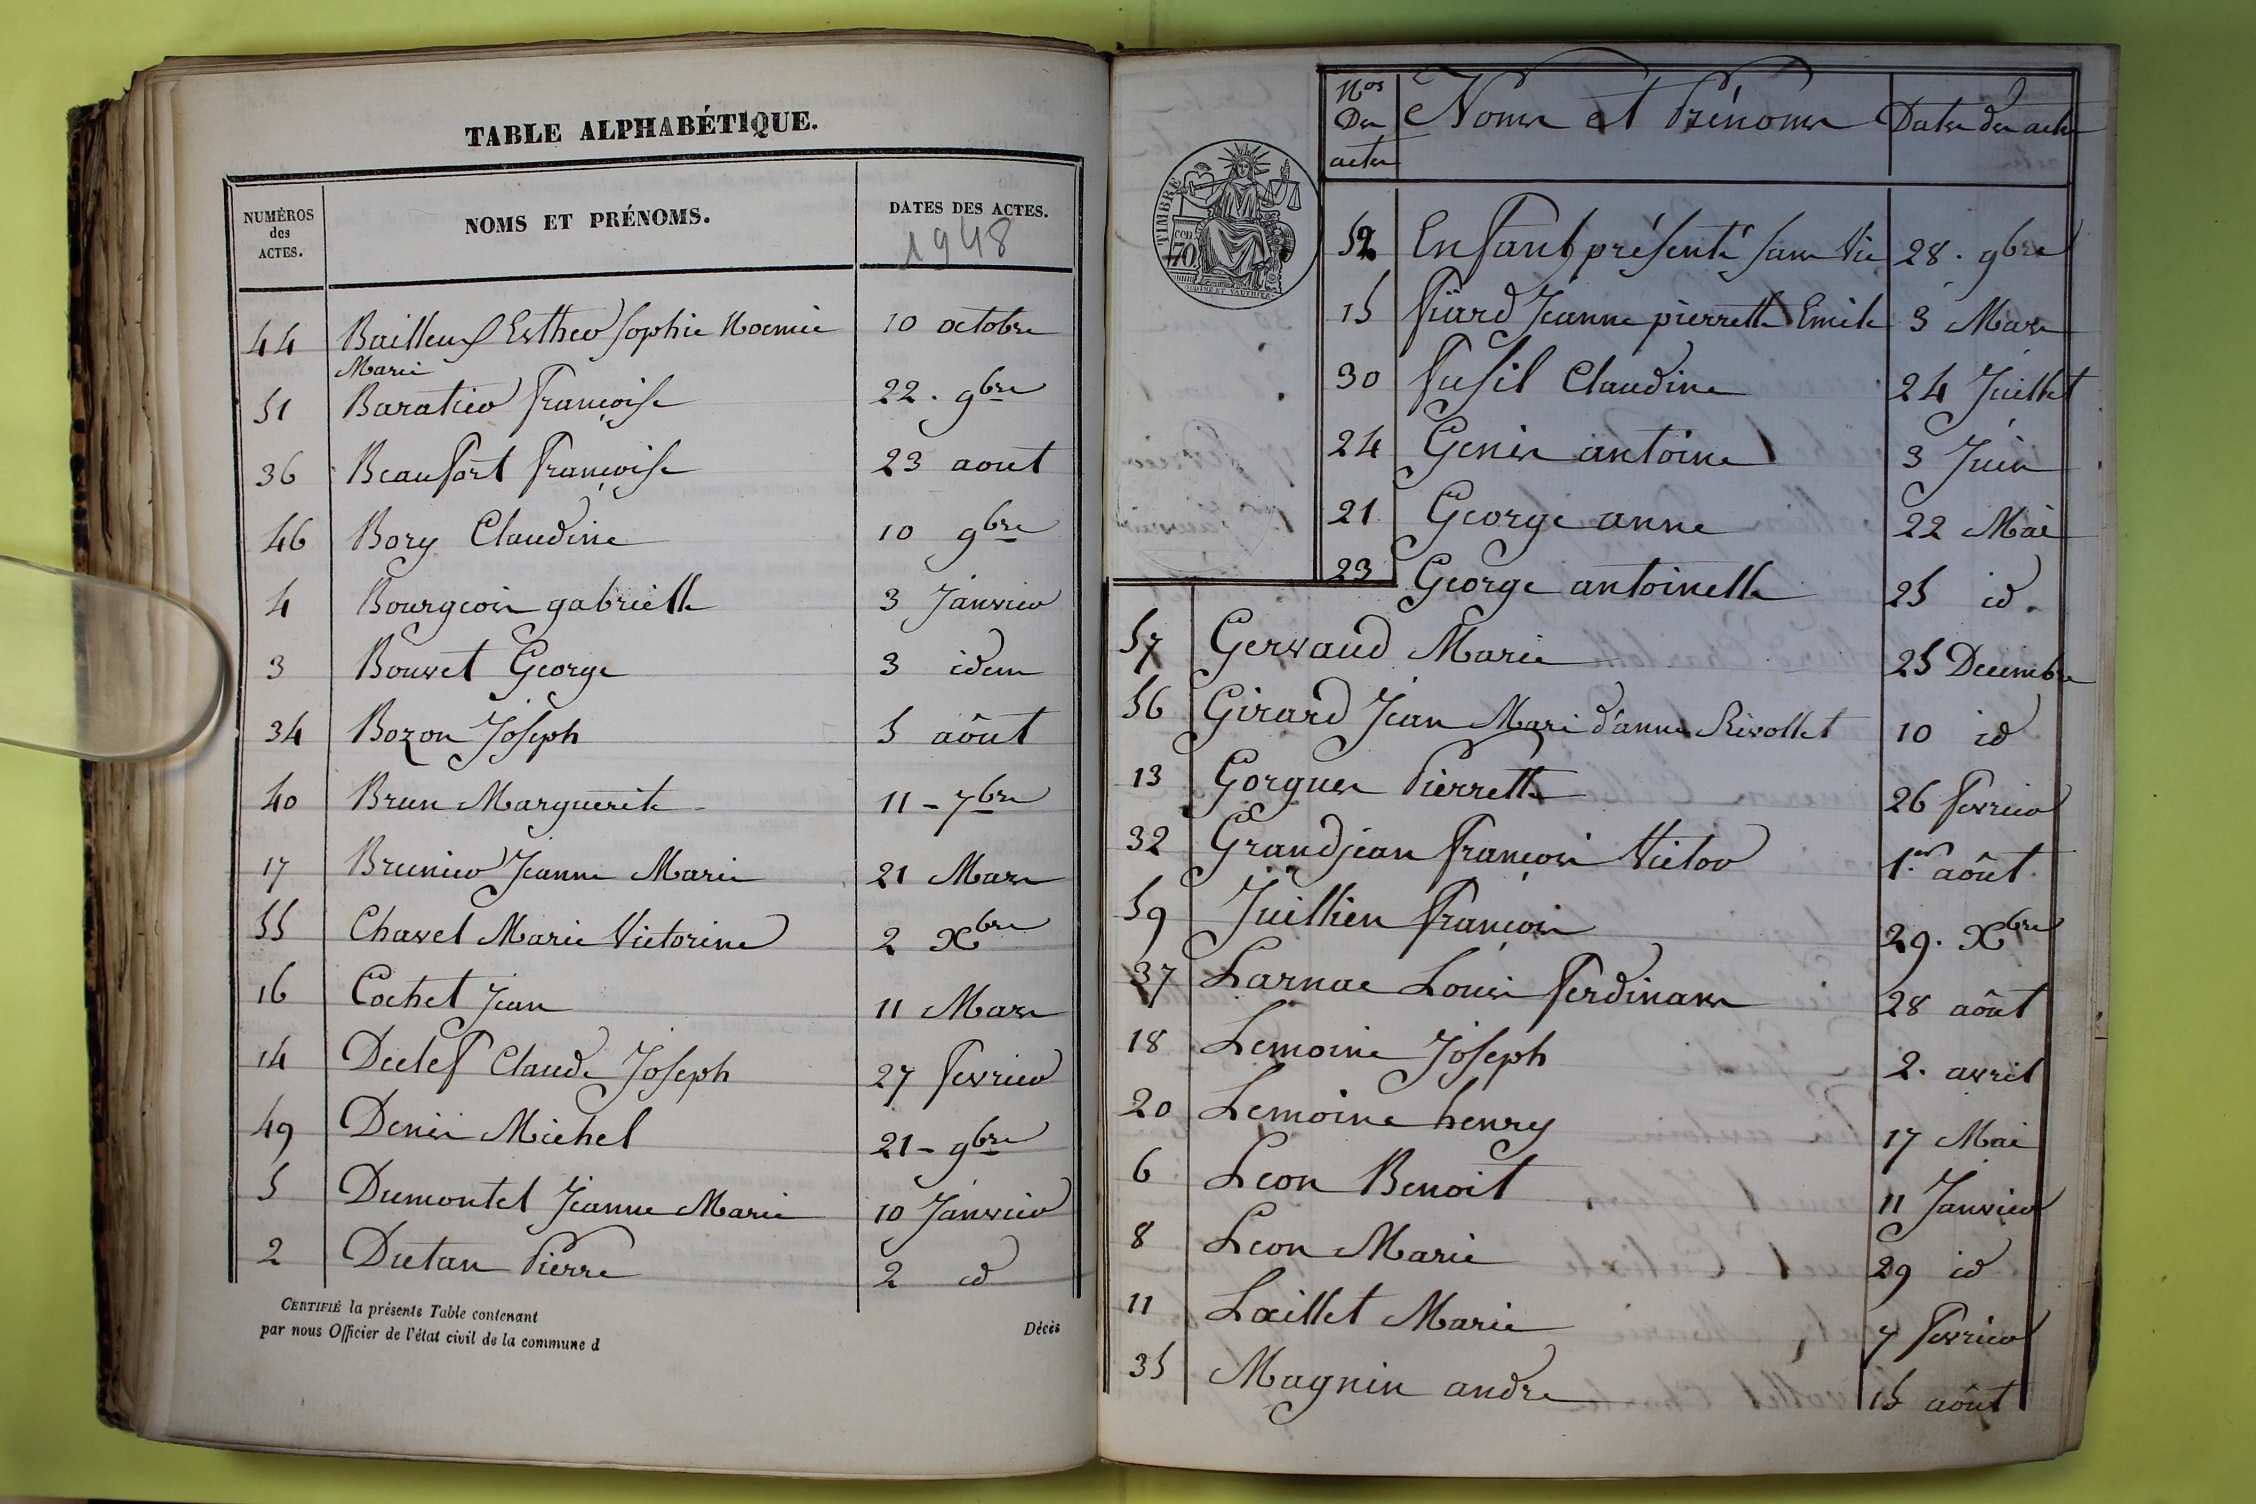 TABLE ALPHABÉTIQUE.
NUMÉROS des ACTES. NOMS ET PRÉNOMS. DATES DES ACTES.
1948
44 Bailleux Esther Sophie Noemie 10 octobre
Marie
51 Baratier françoise 22. 9bre
36 Beaufort françoise 23 aout
46 Bory Claudine 10 9bre
4 Bourgeois gabrielle 3 Janvier
3 Bouvet George 3 idem
34 Bozon Joseph 5 aôut
40 Brun Marguerite 11 - 7bre
17 Brunier Jeanne Marie 21 Mars
55 Chavel Marie Victorine 2 Xbre
16 Cochet Jean 11 Mars
14 Declef Claude Joseph 27 fevrier
49 Denis Michel 21 - 9bre
5 Dumontel Jeanne Marie 10 Janvier
2 Dutan Pierre 2 id
CERTIFIÉ la présente Table contenant
par nous Officier de l'état civil de la commune d
Décès
TIMBRE
COD
70
Nos Des actes Noms et Prénoms Dates des actes
52 Enfant présenté sans Vie 28. 9bre
15 fiard Jeanne pierrette Emile 3 Mars
30 fusil Claudine 24 Juillet
24 Genis antoine 3 Juin
21 George anne 22 Mai
23 George antoinette 25 id.
57 Gervaud Marie 25 Decembre
56 Girard Jean Mari d'anne Rivollet 10 id
13 Gorgues Pierrette 26 fevrier
32 Grandjean françois Victor 1er aôut
59 Juillien françois 29. Xbre
37 Larnac Louis ferdinans 28 aôut
18 Lemoine Joseph 2. avril
20 Lemoine henry 17 Mai
6 Leon Benoit 11 Janvier
8 Leon Marie 29 id
11 Loeillet Marie 7 fevrier
35 Magnin andre 15 aôut